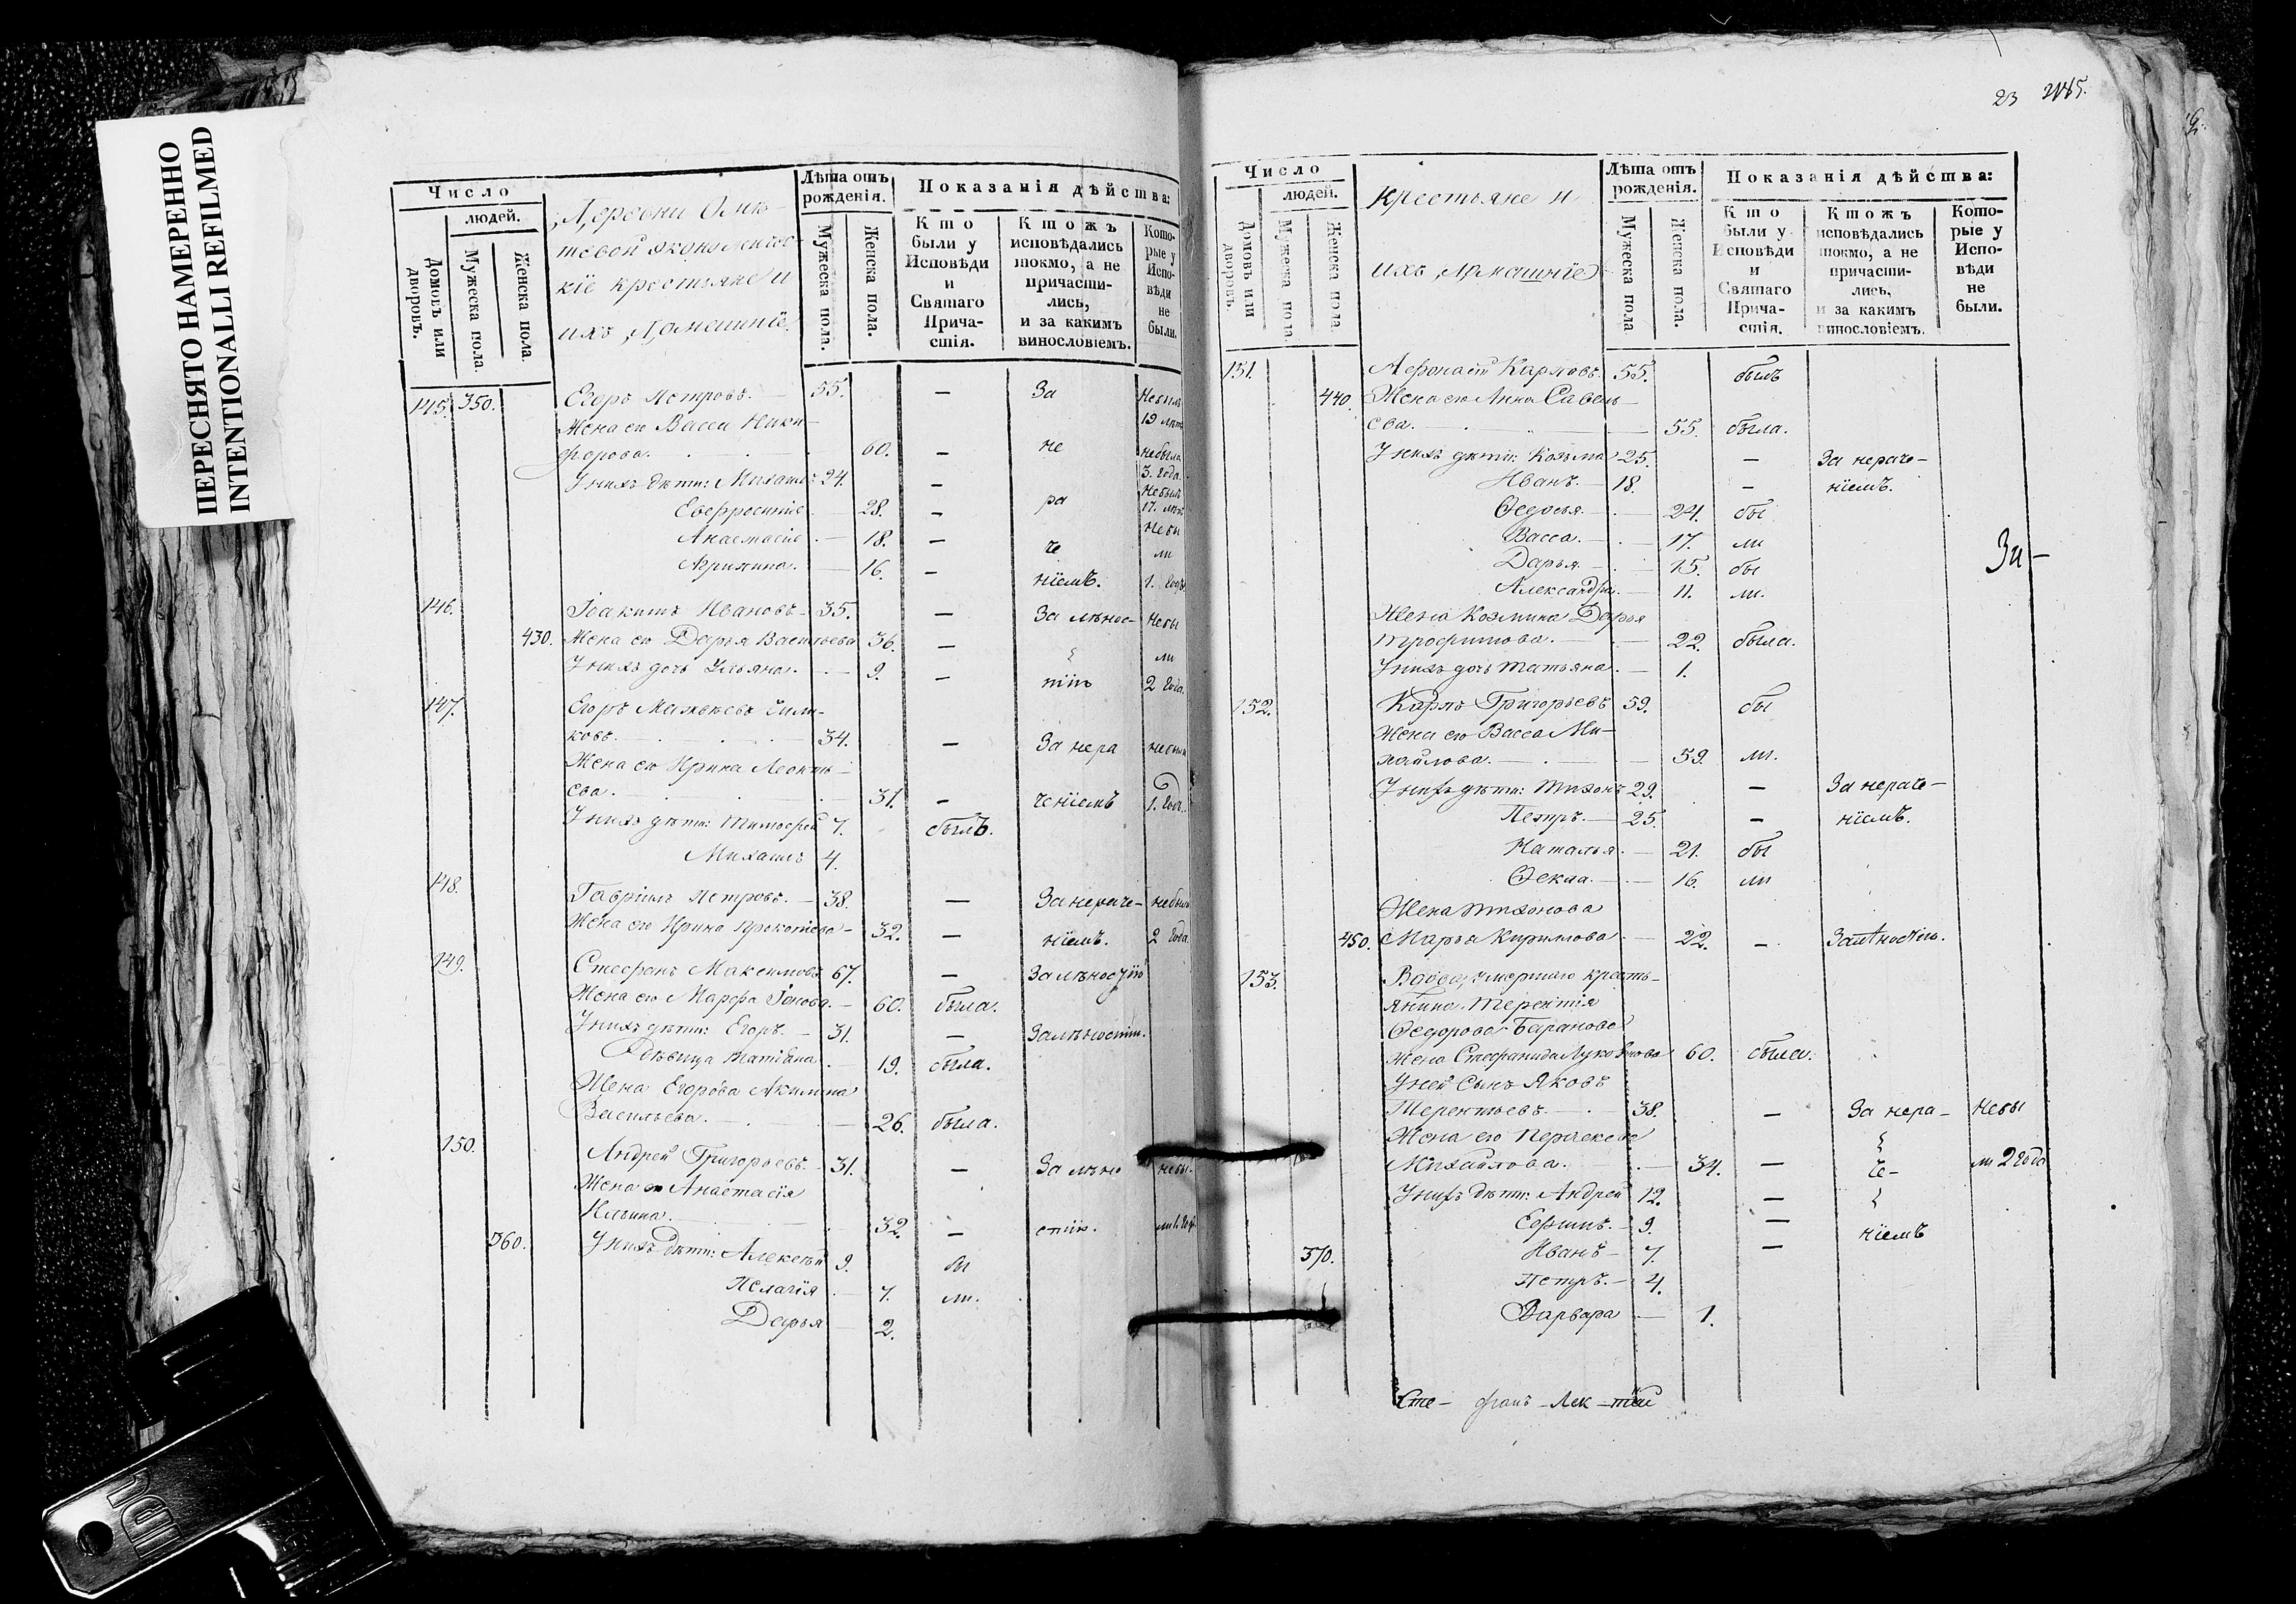 ПЕРЕСНЯТО НАМЕРЕННО
INTENTIONALLI REFILMED
Число
людей.
Домовъ или дворовъ.
Мужеска пола
Женска пола.
Деревни
кіе крестьяне и
ихъ Домашніе.
Лѣта отъ рожденія.
Мужеска пола.
Женска пола.
Показанія дѣйства:
Кто были у Исповѣди и Святаго Причастія.
Ктожъ исповѣдались токмо, а не причастились, и за какимъ винословіемъ.
Которые у Исповѣди не были.
145. 350. Егоръ Петровъ. 55. — За Небылъ
19 лѣтъ
Жена ею Васса Ники-
форова. 60. — не небыла
3. года.
У нихъ дѣти: Михаилъ 24. — Небылъ
Евфросинія 28. — ра 17. лѣтъ
Анастасія — 18. — че Небы
ли
Агрипина. — 16. — ніемъ. 1. годъ
146. Іоакимъ Ивановъ 35. — За лѣнос- Небы
430. Жена ею Дарья Васильева 36. — ли
У нихъ дочь Ульяна. — 9. — тію 2 года.
147. Егоръ
ковъ. 34. — За нера небыли
Жена ею Ирина Леонть-
ева. 31. — ченіемъ 1. года.
У нихъ дѣти: Тимофей 7. былъ.
Михаилъ 4.
148. Гавріилъ Петровъ. — 38. — За нераче- небыли
Жена ею Ирина Прокопіева — 32. — ніемъ. 2 года
149. Стефанъ Максимовъ 67. — За лѣностію
Жена ею Марфа Іонова. — 60. была.
У нихъ дѣти: Егоръ. — 31. — За лѣностію.
Дѣвица Татіана. 19. была.
Жена Егорова Акилина
Васильева. — 26. была.
150. Андрей Григорьевъ. 31. — За лѣно небы-
Жена ею Анастасія
Ильина. 32. — стію. ли 1. годъ
360. У нихъ дѣти: Алексѣй 9. бы
Пелагія — 7. ли.
Дарья — 2.
23 2145.
Число
людей.
Домовъ или дворовъ.
Мужеска пола
Женска пола.
крестьяне и
ихъ Домашніе
Лѣта отъ рожденія.
Мужеска пола
Женска пола.
Показанія дѣйства:
Кто были у Исповѣди и Святаго Причастія.
Ктожъ исповѣдались токмо, а не причастились, и за какимъ винословіемъ.
Которые у Исповѣди не были.
151. Афонасій Карповъ. 55. былъ
440. Жена ею Анна Савель-
ева. — 55. была.
У нихъ дѣти: Козьма 25. — За нераче-
Иванъ. — 18. — ніемъ.
Федосья. — 24. бы
Васса. — 17. ли
За-
Дарья — 15. бы
Александра. — 11. ли.
Жена Козмина Дарья
Трофимова. — 22. была.
У нихъ дочь Татьяна. — 1.
152. Карпъ Григорьевъ 59. бы
Жена ею Васса Ми-
хайлова. — 59. ли.
У нихъ дѣти: Тихонъ 29. — За нераче-
Петръ. — 25. — ніемъ.
Наталья. — 21. бы
Фекла. — 16. ли
Жена Тихонова
450. Марья Кирилова — 22. — За лѣностію.
153. Вдова, умершаго кресть-
янина Терентія
Федорова Баранова
жена Стефанида 60. была.
У ней сынъ Яковъ
Терентьевъ. — 38. — За нера- Небы
Жена его
Михайлова. — 34. — че- ли 2 года
У нихъ дѣти: Андрей 12. —
Ефимъ. — 9. — ніемъ
370. Иванъ — 7. —
Петръ. — 4.
Варвара — 1.
Сте- фанъ